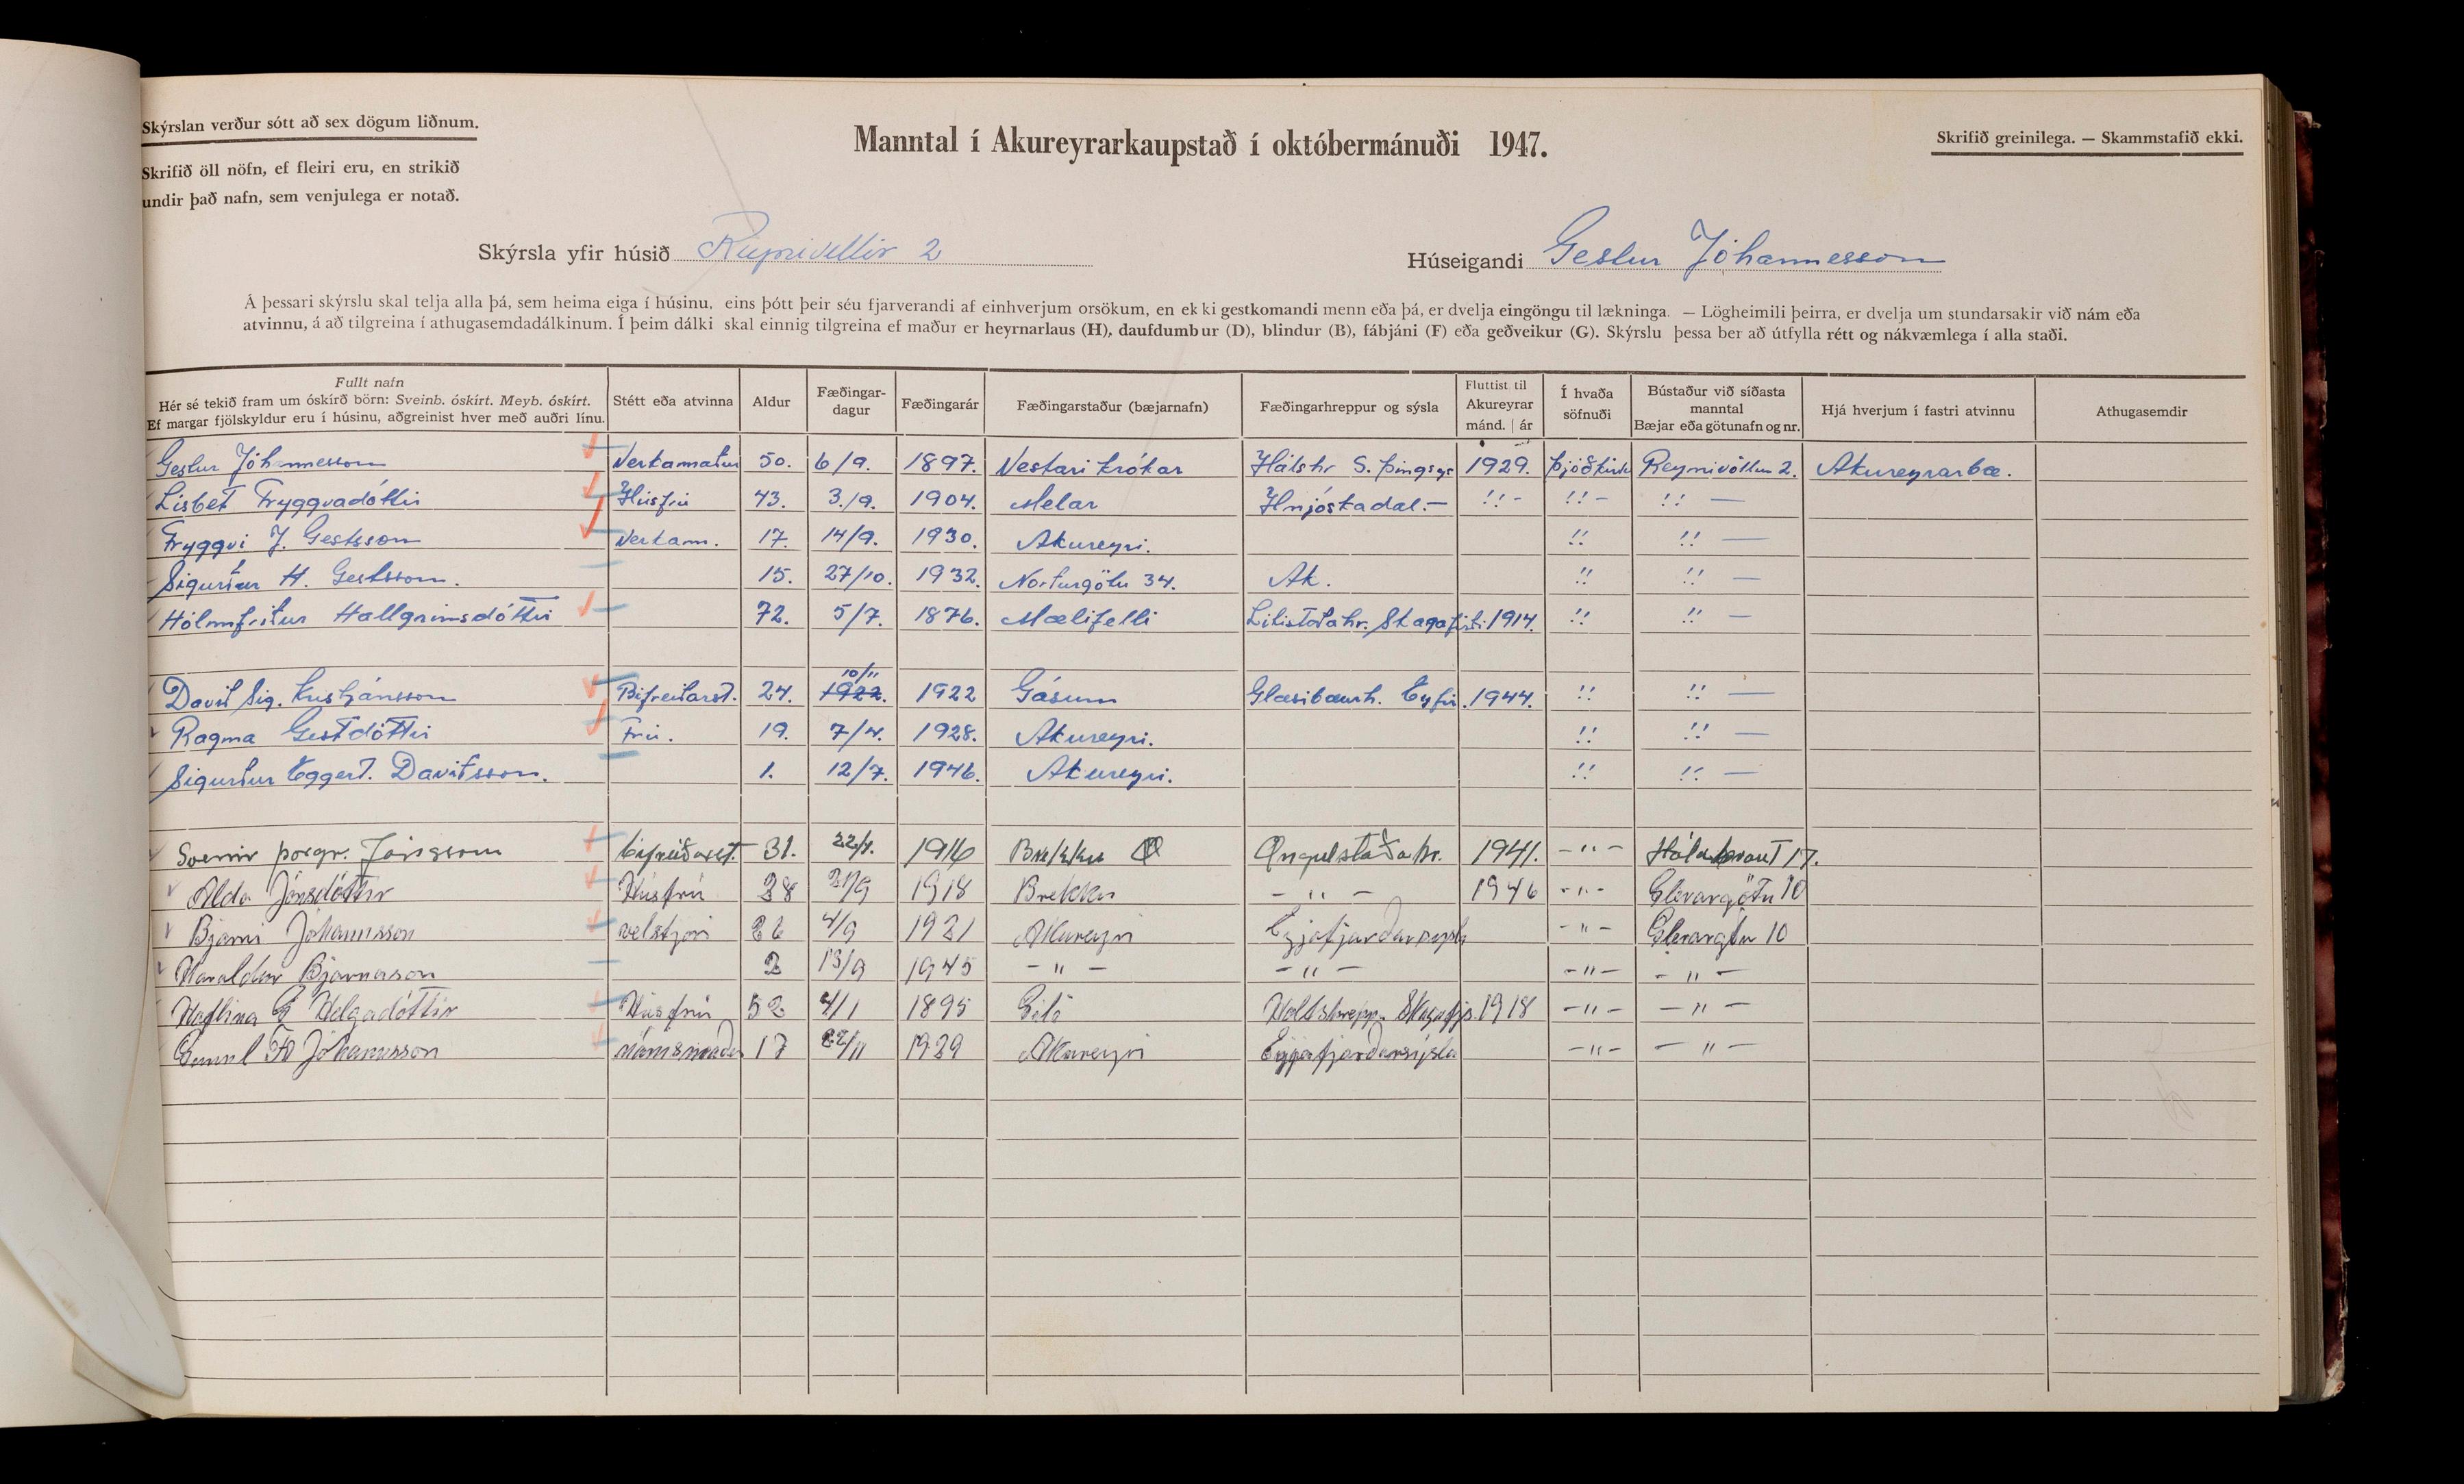 Skýrslan verður sótt að sex dögum liðnum.
Skrifið öll nöfn, ef fleiri eru, en strikið
undir það nafn, sem venjulega er notað.
Manntal í Akureyrarkaupstað í októbermánuði 1947.
Skrifið greinilega. — Skammstafið ekki.
Skýrsla yfir húsið Reynivellir 2
Húseigandi Gestur Jóhannesson
Á þessari skýrslu skal telja alla þá, sem heima eiga í húsinu, eins þótt þeir séu fjarverandi af einhverjum orsökum, en ekki gestkomandi menn eða þá, er dvelja eingöngu til lækninga. — Lögheimili þeirra, er dvelja um stundarsakir við nám eða
atvinnu, á að tilgreina í athugasemdadálkinum. Í þeim dálki skal einnig tilgreina ef maður er heyrnarlaus (H), daufdumbur (D), blindur (B), fábjáni (F) eða geðveikur (G). Skýrslu þessa ber að útfylla rétt og nákvæmlega í alla staði.
Fullt nafn
Hér sé tekið fram um óskírð börn: Sveinb. óskírt. Meyb. óskírt.
Ef margar fjölskyldur eru í húsinu, aðgreinist hver með auðri línu.
Stétt eða atvinna
Aldur
Fæðingar-
dagur
Fæðingarár
Fæðingarstaður (bæjarnafn)
Fæðingarhreppur og sýsla
Fluttist til
Akureyrar
mánd. | ár
Í hvaða
söfnuði
Bústaður við síðasta
manntal
Bæjar eða götunafn og nr.
Hjá hverjum í fastri atvinnu
Athugasemdir
Gestur Jóhannesson Verkamatur 50. 6/9. 1897. Vestari Krókar Hálshr S. Þingsys 1929. Þjóðkirk Reynivöllum 2. Akureyrarbæ.
Lisbet Tryggvadóttir Húsfrú 43. 3/9. 1904. Melar Hnjóskadal.— !! - !! - !! —
Tryggvi J. Gestsson Verkam. 17. 14/9. 1930. Akureyri. !! !! —
Sigurtur H. Gestsson. 15. 27/10. 1932. Norturgötu 34. Ak. !! !! —
Hólmfritur Hallgrimsdóttir 72. 5/7. 1876. Mælifelli Litistatahr. Skagafirti 1914. !! !! —
Davit Sig. Kristjánsson Bifreitarst. 24. 10/11 1922. 1922 Gásum Glæsibæurh. Eyfir. 1944. !! !! —
Ragma Gestdóttir Frú. 19. 7/4. 1928. Akureyri. !! !! —
Sigurtur Eggert. Davitsson. 1. 12/7. 1946. Akureyri. !! !! —
Sverrir Þorgr. Jónsson bifreiðarst. 31. 22/4. 1916 Brekku Öngulstaðahr. 1941. — " — 17.
Alda Jónsdóttir Húsfrú 28 1918 Brekku — " — 1946 - " - Glerargötu 10
Bjarni Jóhannsson velstjori 26 4/9 1921 Akureyri Eyjafjarðarsysla - " - Glerargötu 10
Haraldur Bjarnason 2 13/9 1945 — " — — " — — " — — " —
Haflina G Helgadóttir Húsfrú 52 4/1 1895 Holtshrepp. Skagafjs. 1918 — " — — " —
Jóhannsson námsmaður 17 22/11 1929 Akureyri Eyjafjarðarsýsla — " — — " —